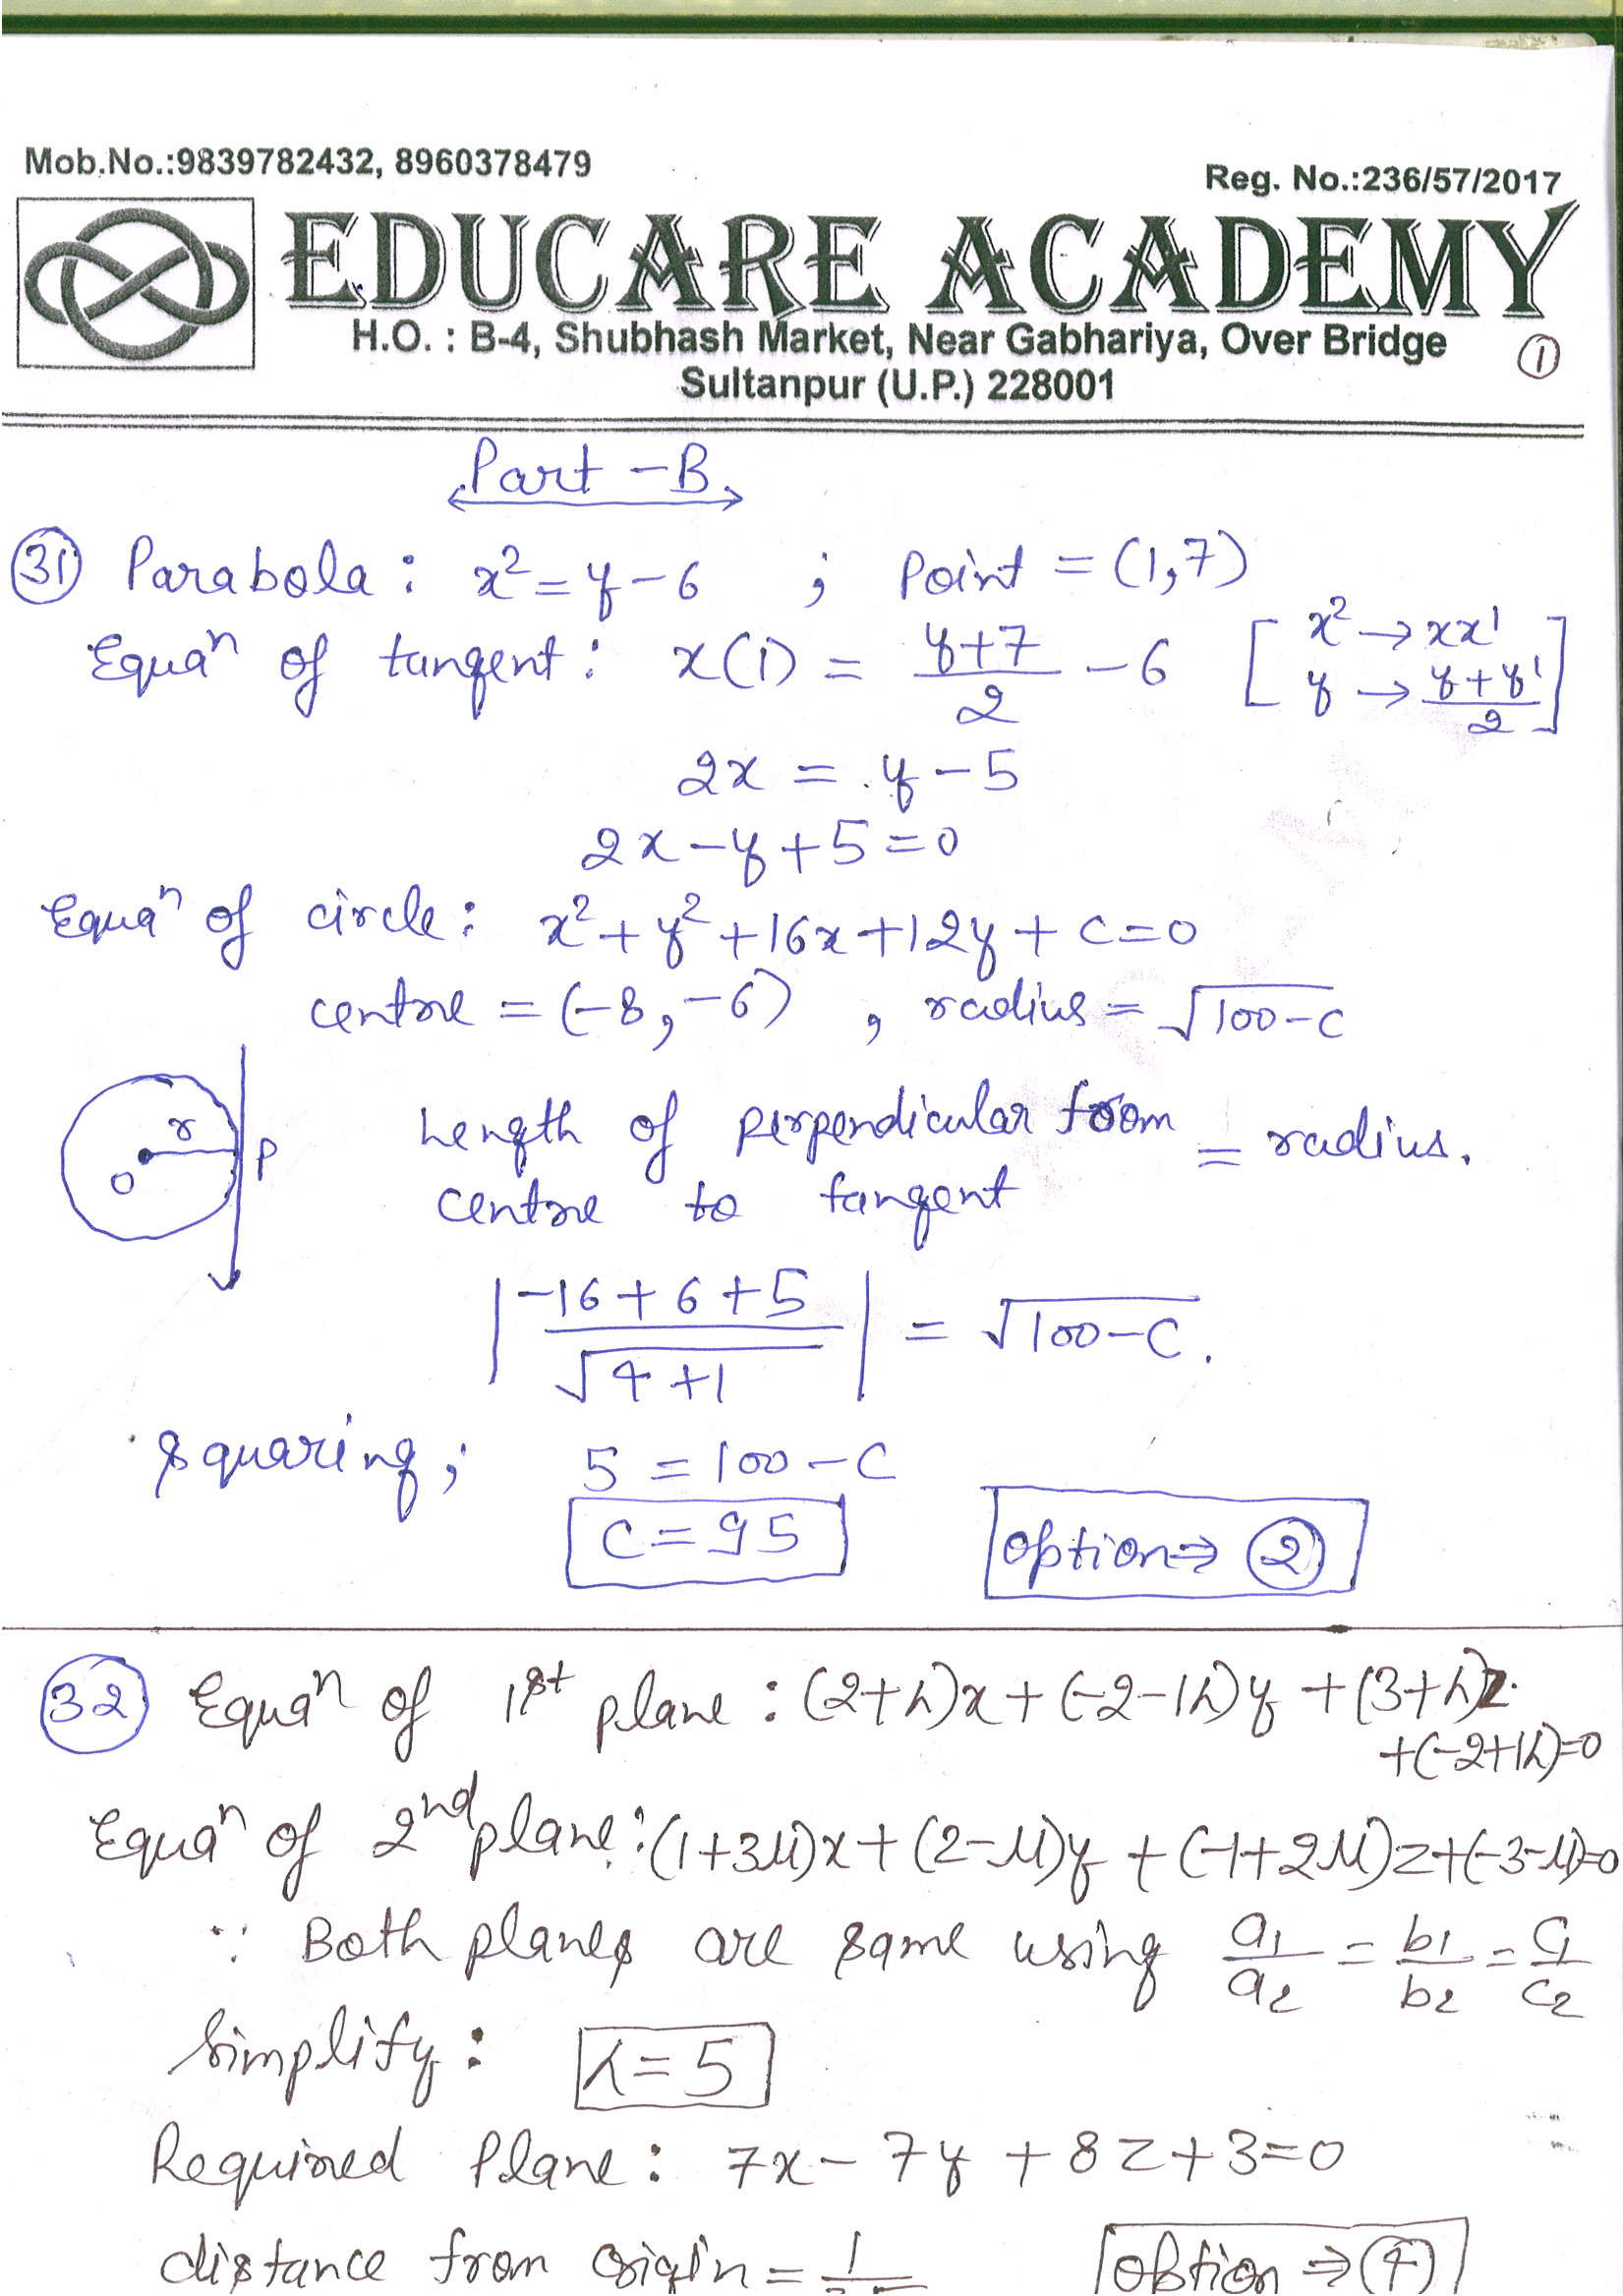 Mob.No.:9839782432, 8960378479
Reg. No.:236/57/2017
EDUCARE ACADEMY
H.O. : B-4, Shubhash Market, Near Gabhariya, Over Bridge
Sultanpur (U.P.) 228001
①
Part - B
㉛ Parabola : x² = y - 6 ; Point = (1,7)
Equaⁿ of tangent : x(1) = (y+7)/2 - 6 [x² → xx' y → (y+y')/2]
2x = y - 5
2x - y + 5 = 0
Equaⁿ of circle : x² + y² + 16x + 12y + c = 0
centre = (-8, -6) , radius = √(100-c)
r
O
P
Length of perpendicular from centre to tangent = radius.
|(-16+6+5)/√(4+1)| = √(100-c).
Squaring; 5 = 100 - c
c = 95
option ⇒ ②
㉜ Equaⁿ of 1st plane : (2+λ)x + (-2-1λ)y + (3+λ)z.
+(-2+1λ)=0
Equaⁿ of 2nd plane : (1+3μ)x + (2-μ)y + (-1+2μ)z+(-3-μ)=0
∵ Both planes are same using a₁/a₂ = b₁/b₂ = c₁/c₂
Simplify : λ = 5
Required Plane : 7x - 7y + 8z + 3 = 0
distance from origin = 1/
option ⇒ (4)